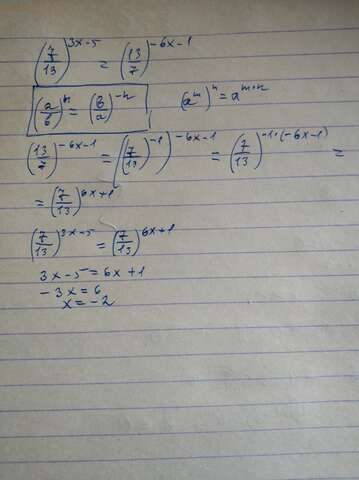 (7/13)^3x-5 = (13/7)^-6x-1
(a/b)^n = (b/a)^-n ; (a^m)^n = a^m·n
(13/7)^-6x-1 = ((7/13)^-1)^-6x-1 = (7/13)^-1·(-6x-1) =
= (7/13)^6x+1
(7/13)^3x-5 = (7/13)^6x+1
3x-5=6x+1
-3x=6
x=-2